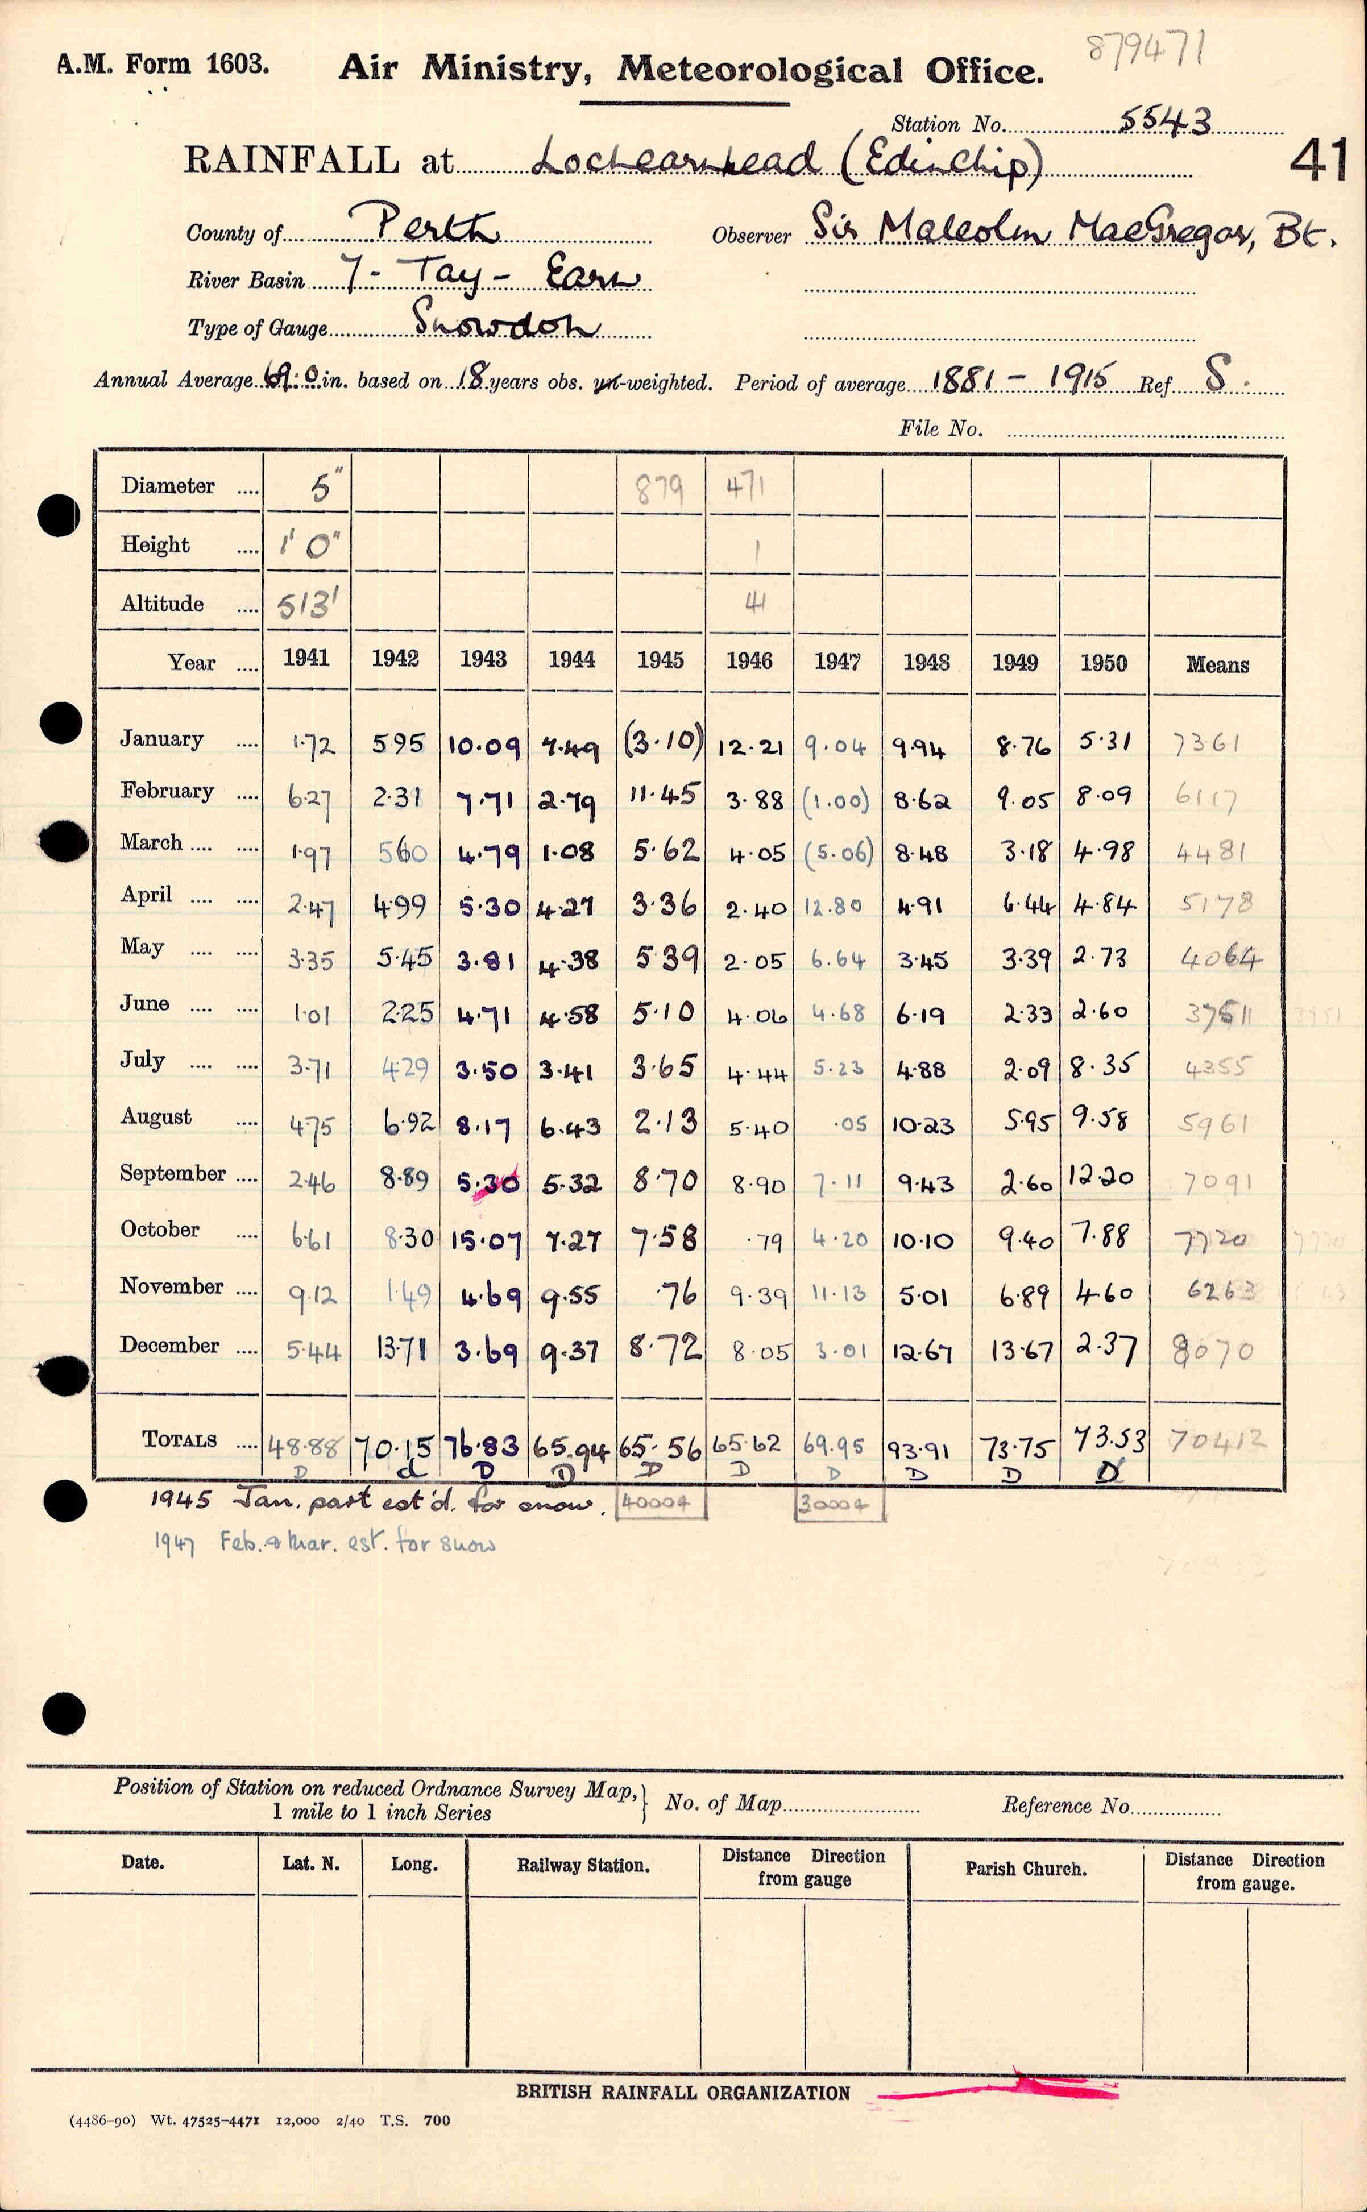 879471
A.M. Form 1603. Air Ministry, Meteorological Office.
Station No. 5543
RAINFALL at Lochearnhead (Edinchip) 41
County of Perth Observer Sir Malcolm MacGregor, Bt.
River Basin 7 - Tay - Earn
Type of Gauge Snowdon
Annual Average 69.0 in. based on 18 years obs. un-weighted. Period of average 1881 - 1915 Ref S.
File No.
Diameter .... 5" 879 471
Height .... 1' 0" 1
Altitude .... 513' 41
Year .... 1941 1942 1943 1944 1945 1946 1947 1948 1949 1950 Means
January .... 1.72 5.95 10.09 7.49 (3.10) 12.21 9.04 9.94 8.76 5.31 7361
February .... 6.27 2.31 7.71 2.79 11.45 3.88 (1.00) 8.62 9.05 8.09 6117
March .... .... 1.97 5.60 4.79 1.08 5.62 4.05 (5.06) 8.48 3.18 4.98 4481
April .... .... 2.47 4.99 5.30 4.27 3.36 2.40 12.80 4.91 6.44 4.84 5178
May .... .... 3.35 5.45 3.81 4.38 5.39 2.05 6.64 3.45 3.39 2.73 4064
June .... .... 1.01 2.25 4.71 4.58 5.10 4.06 4.68 6.19 2.33 2.60
July .... .... 3.71 4.29 3.50 3.41 3.65 4.44 5.23 4.88 2.09 8.35 4355
August .... 4.75 6.92 8.17 6.43 2.13 5.40 .05 10.23 5.95 9.58 5961
September .... 2.46 8.89 5.30 5.32 8.70 8.90 7.11 9.43 2.60 12.20 7091
October .... 6.61 8.30 15.07 7.27 7.58 .79 4.20 10.10 9.40 7.88 7720
November .... 9.12 1.49 4.69 9.55 .76 9.39 11.13 5.01 6.89 4.60 6263
December .... 5.44 13.71 3.69 9.37 8.72 8.05 3.01 12.67 13.67 2.37 8070
TOTALS .... 48.88 70.15 76.83 65.94 65.56 65.62 69.95 93.91 73.75 73.53 70412
D d D D D D D D D D
1945 Jan. part est'd. for snow. 40004 30004
1947 Feb. & Mar. est. for snow
Position of Station on reduced Ordnance Survey Map, 1 mile to 1 inch Series } No. of Map Reference No.
Date. Lat. N. Long. Railway Station. Distance from gauge Direction Parish Church. Distance Direction from gauge.
BRITISH RAINFALL ORGANIZATION
(4486-90) Wt. 47525-4471 12,000 2/40 T.S. 700